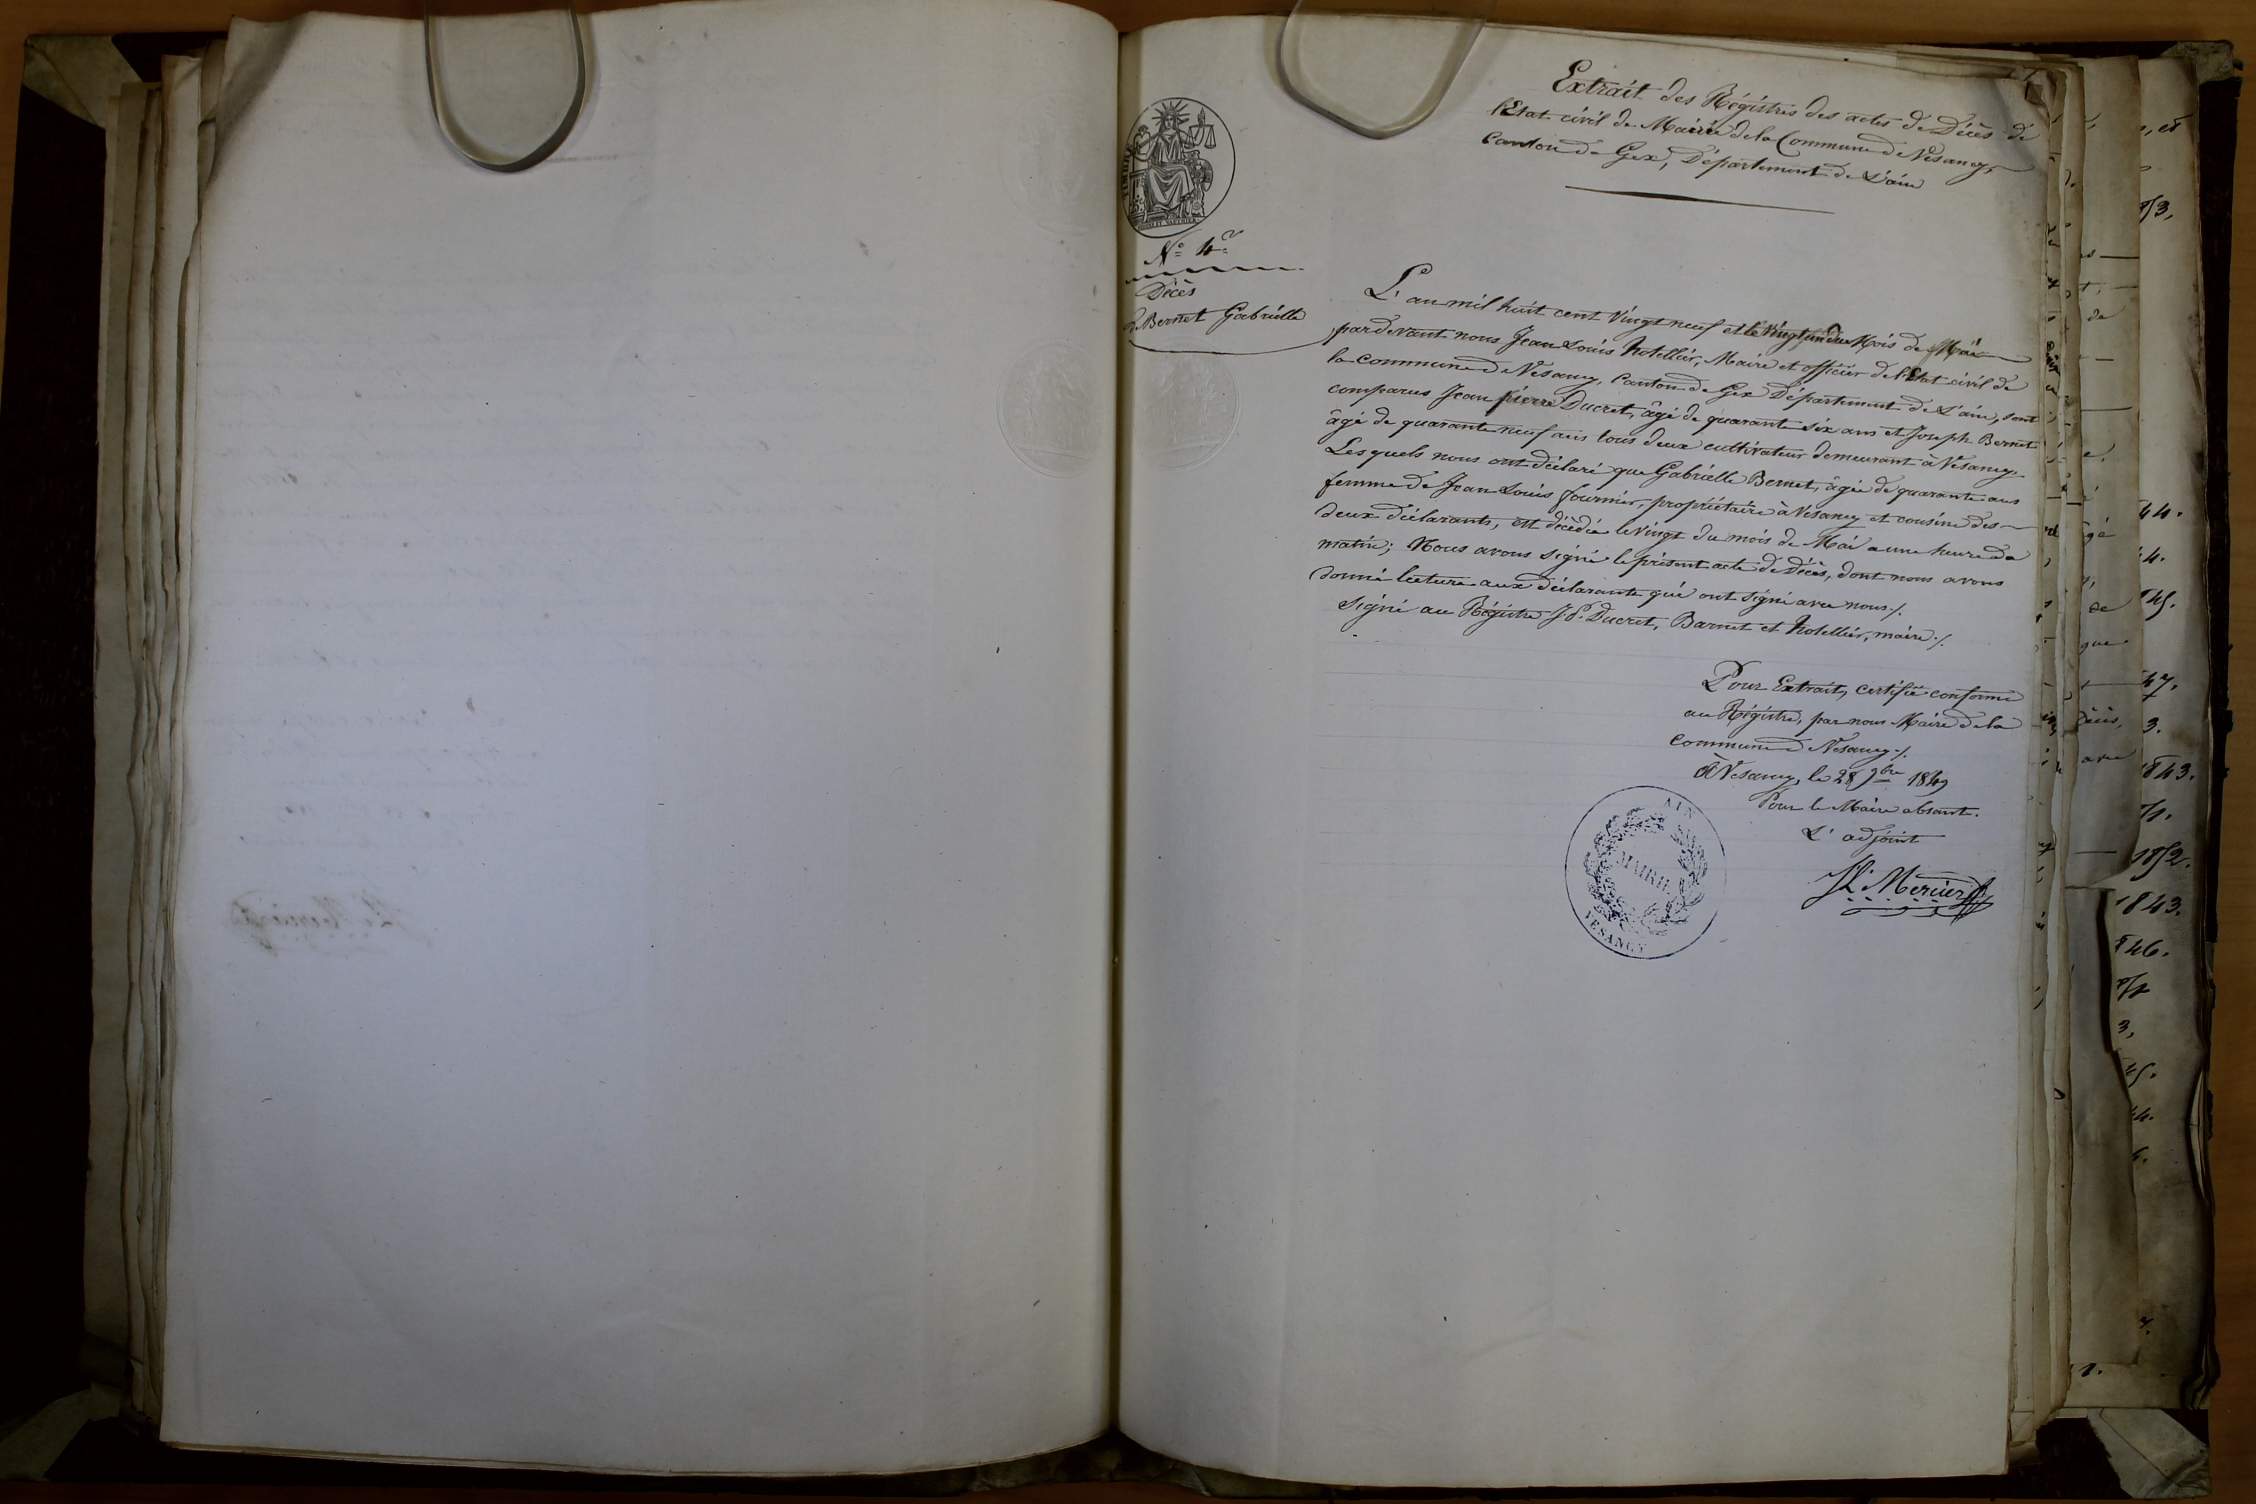 Extrait des Régistres des actes de Décès de
l'Etat civil de Mairie de la Commune de Vésancy,
canton de Gex, Département de L'ain
TIMBRE
N° 4
Décès
de Bernet Gabriélle
L'an mil huit cent vingt neuf et le vingt un du Mois de Mai
pardevant nous Jean Louis hotellier, Maire et officier de l'Etat civil de
la commune de Vésancy, Canton de Gex Département de L'ain, sont
comparus Jean pierre Ducret, âgé de quarante six ans et Joseph Bernet
âgé de quarante neuf ans tous deux cultivateur demeurant à Vésancy
Lesquels nous ont déclaré que Gabriélle Bernet, âgée de quarante ans
femme de Jean Louis fournier, propriétaire à Vésancy et cousine des
deux déclarants, est décédée le vingt du mois de Mai a une heure du
matin; Nous avons signé le présent acte de Décès, dont nous avons
donné lecture aux déclarants qui ont signé avec nous ./.
Signé au Régistre J. P. Ducret, Barnet et hotellier, maire ./.
Pour Extrait, certifié conforme
au Régistre, par nous Maire de la
commune de Vésancy ./.
à Vésancy, le 28 9bre 1849
Pour le Maire absent.
L'adjoint
JL Mercier
AIN
MAIRIE
VESANCY